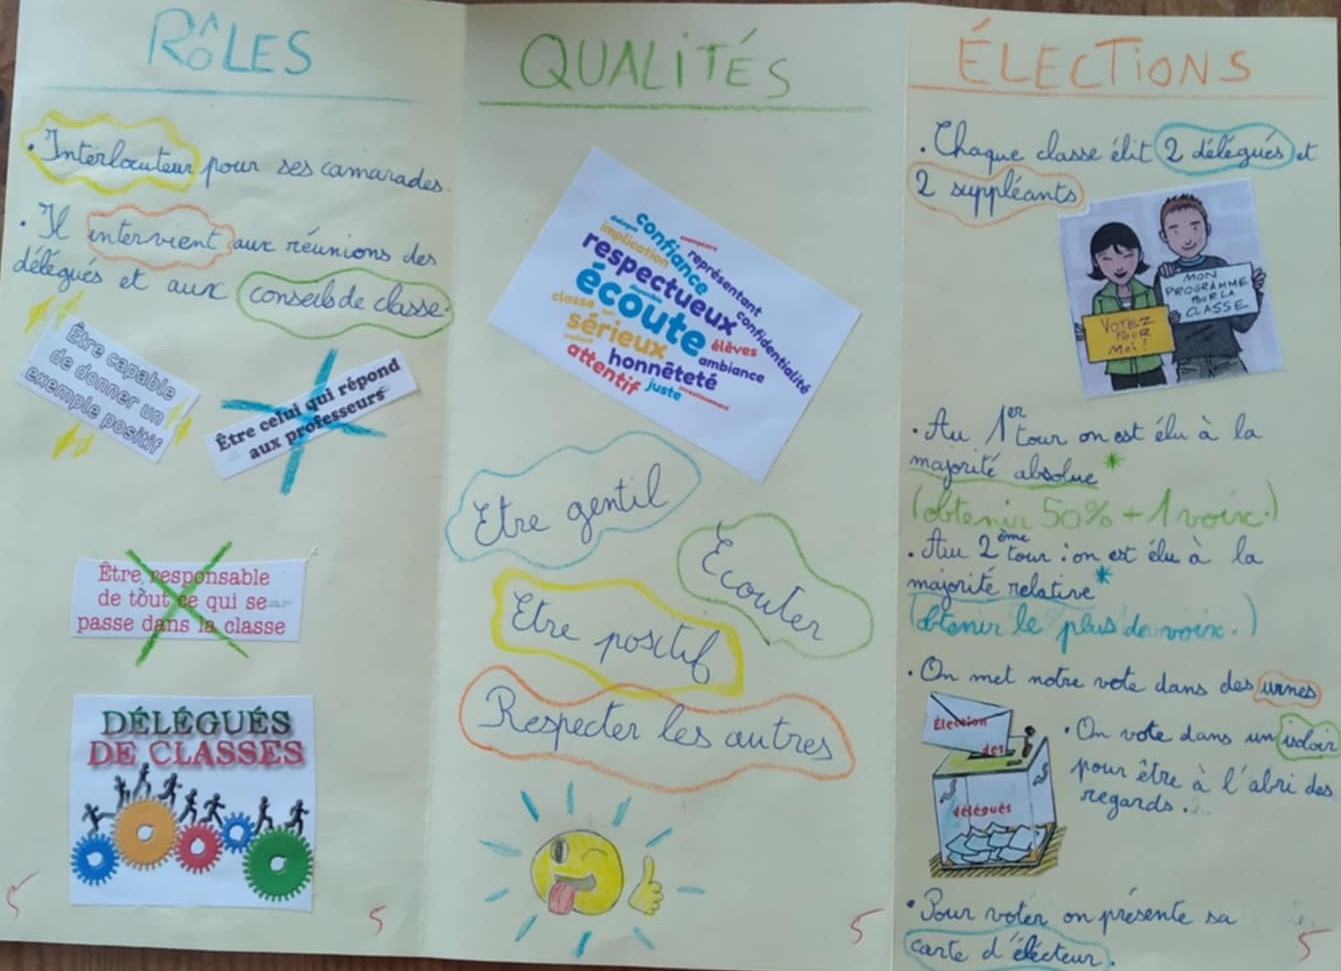 RÔLES
• Interlocuteur pour ses camarades.
• Il intervient aux réunions des
délégués et aux conseils de classe.
Être capable
de donner un
exemple positif
Être celui qui répond
aux professeurs
Être responsable
de tout ce qui se
passe dans la classe
DÉLÉGUÉS
DE CLASSES
5
5
QUALITÉS
exemplaire
dialogue
confiance
implication
représentant
respectueux
confidentialité
écoute
classe
sérieux
élèves
ambiance
honnêteté
attentif
juste
investissement
Etre gentil
Ecouter
Etre positif
Respecter les autres
5
ÉLECTIONS
• Chaque classe élit 2 délégués et
2 suppléants
MON
PROGRAMME
POUR LA
CLASSE
VOTEZ
POUR
MOI !
• Au 1er tour on est élu à la
majorité absolue*
(obtenir 50% + 1 voix.)
• Au 2ème tour : on est élu à la
majorité relative*
(obtenir le plus de voix.)
• On met notre vote dans des urnes
Élection
des
délégués
• On vote dans un isoloir
pour être à l'abri des
regards.
• Pour voter on présente sa
carte d'électeur.
5